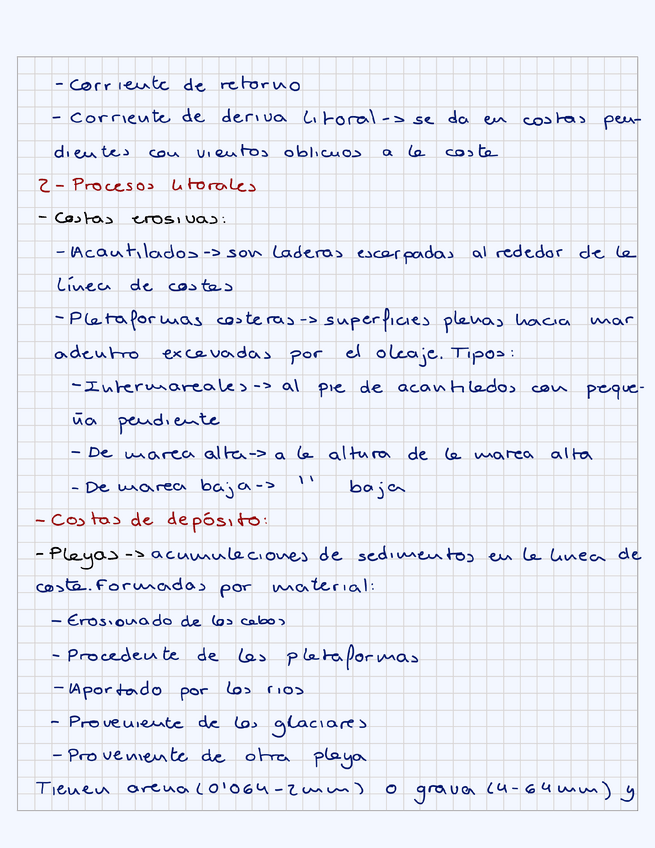 - Corriente de retorno
- Corriente de deriva litoral -> se da en costas pen-
dientes con vientos oblicuos a la costa
2 - Procesos litorales
- Costas erosivas:
- Acantilados -> son laderas escarpadas al rededor de la
línea de costas
- Plataformas costeras -> superficies planas hacia mar
adentro excavadas por el oleaje. Tipos:
- Intermareales -> al pie de acantilados con peque-
ña pendiente
- De marea alta -> a la altura de la marea alta
- De marea baja -> '' baja
- Costas de depósito:
- Playas -> acumulaciones de sedimentos en la línea de
costa. Formadas por material:
- Erosionado de los cabos
- Procedente de las plataformas
- Aportado por los rios
- Proveniente de los glaciares
- Proveniente de otra playa
Tienen arena (0'064 - 2mm) o grava (4 - 64mm) y